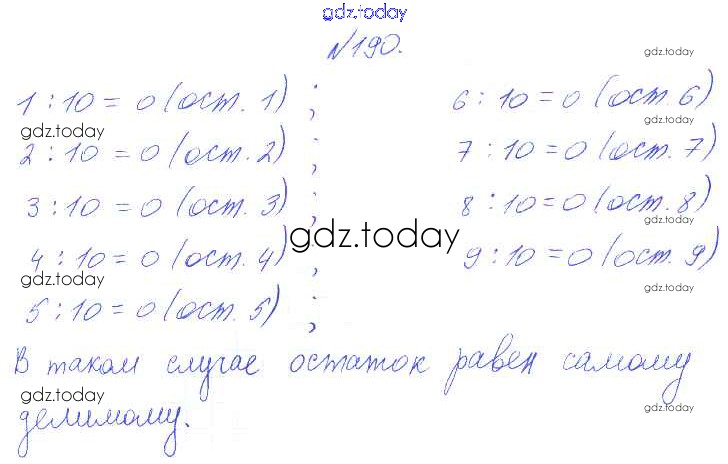 gdz.today
№190. gdz.today
1 : 10 = 0 (ост. 1) ; 6 : 10 = 0 (ост. 6)
gdz.today gdz.today
2 : 10 = 0 (ост. 2) ; 7 : 10 = 0 (ост. 7)
3 : 10 = 0 (ост. 3) ; 8 : 10 = 0 (ост. 8)
gdz.today gdz.today
4 : 10 = 0 (ост. 4) ; 9 : 10 = 0 (ост. 9)
gdz.today
5 : 10 = 0 (ост. 5) ;
В таком случае остаток равен самому
gdz.today gdz.today
делимому.